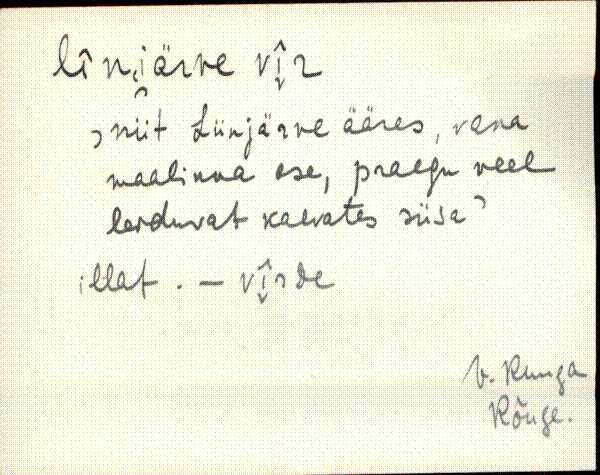 lîn̬järve vî̬r
‚niit Liinjärve ääres, vana
maalinna ase, praegu veel
leiduvat kaevates süsa’
illat. — vî̬rde
V. Ruuga
Rõuge.